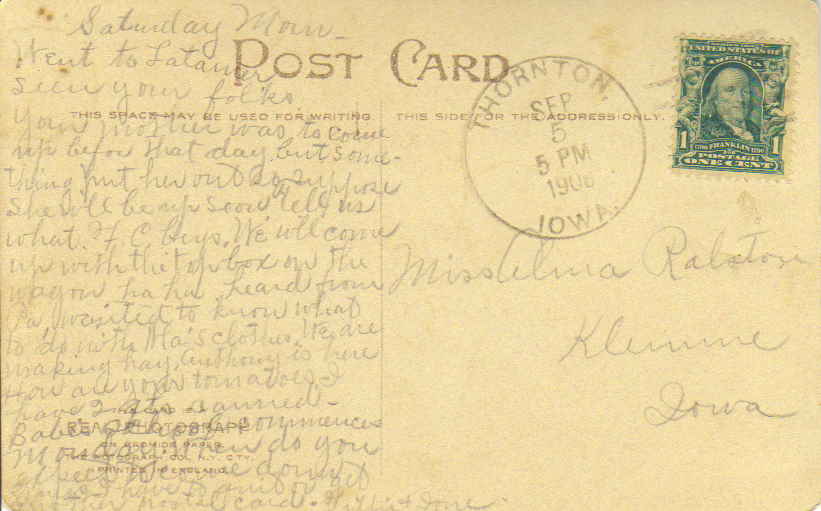 Saturday Morn-
Went to Latimer
Seen your folks
Your mother was to come
up befor that day but some-
thing put her out so suppose
She will be up scon tell us
what F. C. buys. We will come
up with the top box on the
wagon ha ha. heard from
Pa wanted to know what
to do with Ma's clothes. We are
making hay. Anthony is here
How are your tomatoes I
have 2 canned-
Babe's commences
Monday When do you
POST CARD
THIS SPACE MAY BE USED FOR WRITING
THIS SIDE FOR THE ADDRESS ONLY.
THORNTON,
SEP
5
5 PM
IOWA.
UNITED STATES OF AMERICA
1 FRANKLIN 1
POSTAGE
ONE CENT
Miss Elma Ralston
Klemme
Iowa
REAL PHOTOGRAPH
ON BROMIDE PAPER
THE ROTOGRAPH CO., N.Y. CITY.
PRINTED IN ENGLAND
another postal card.